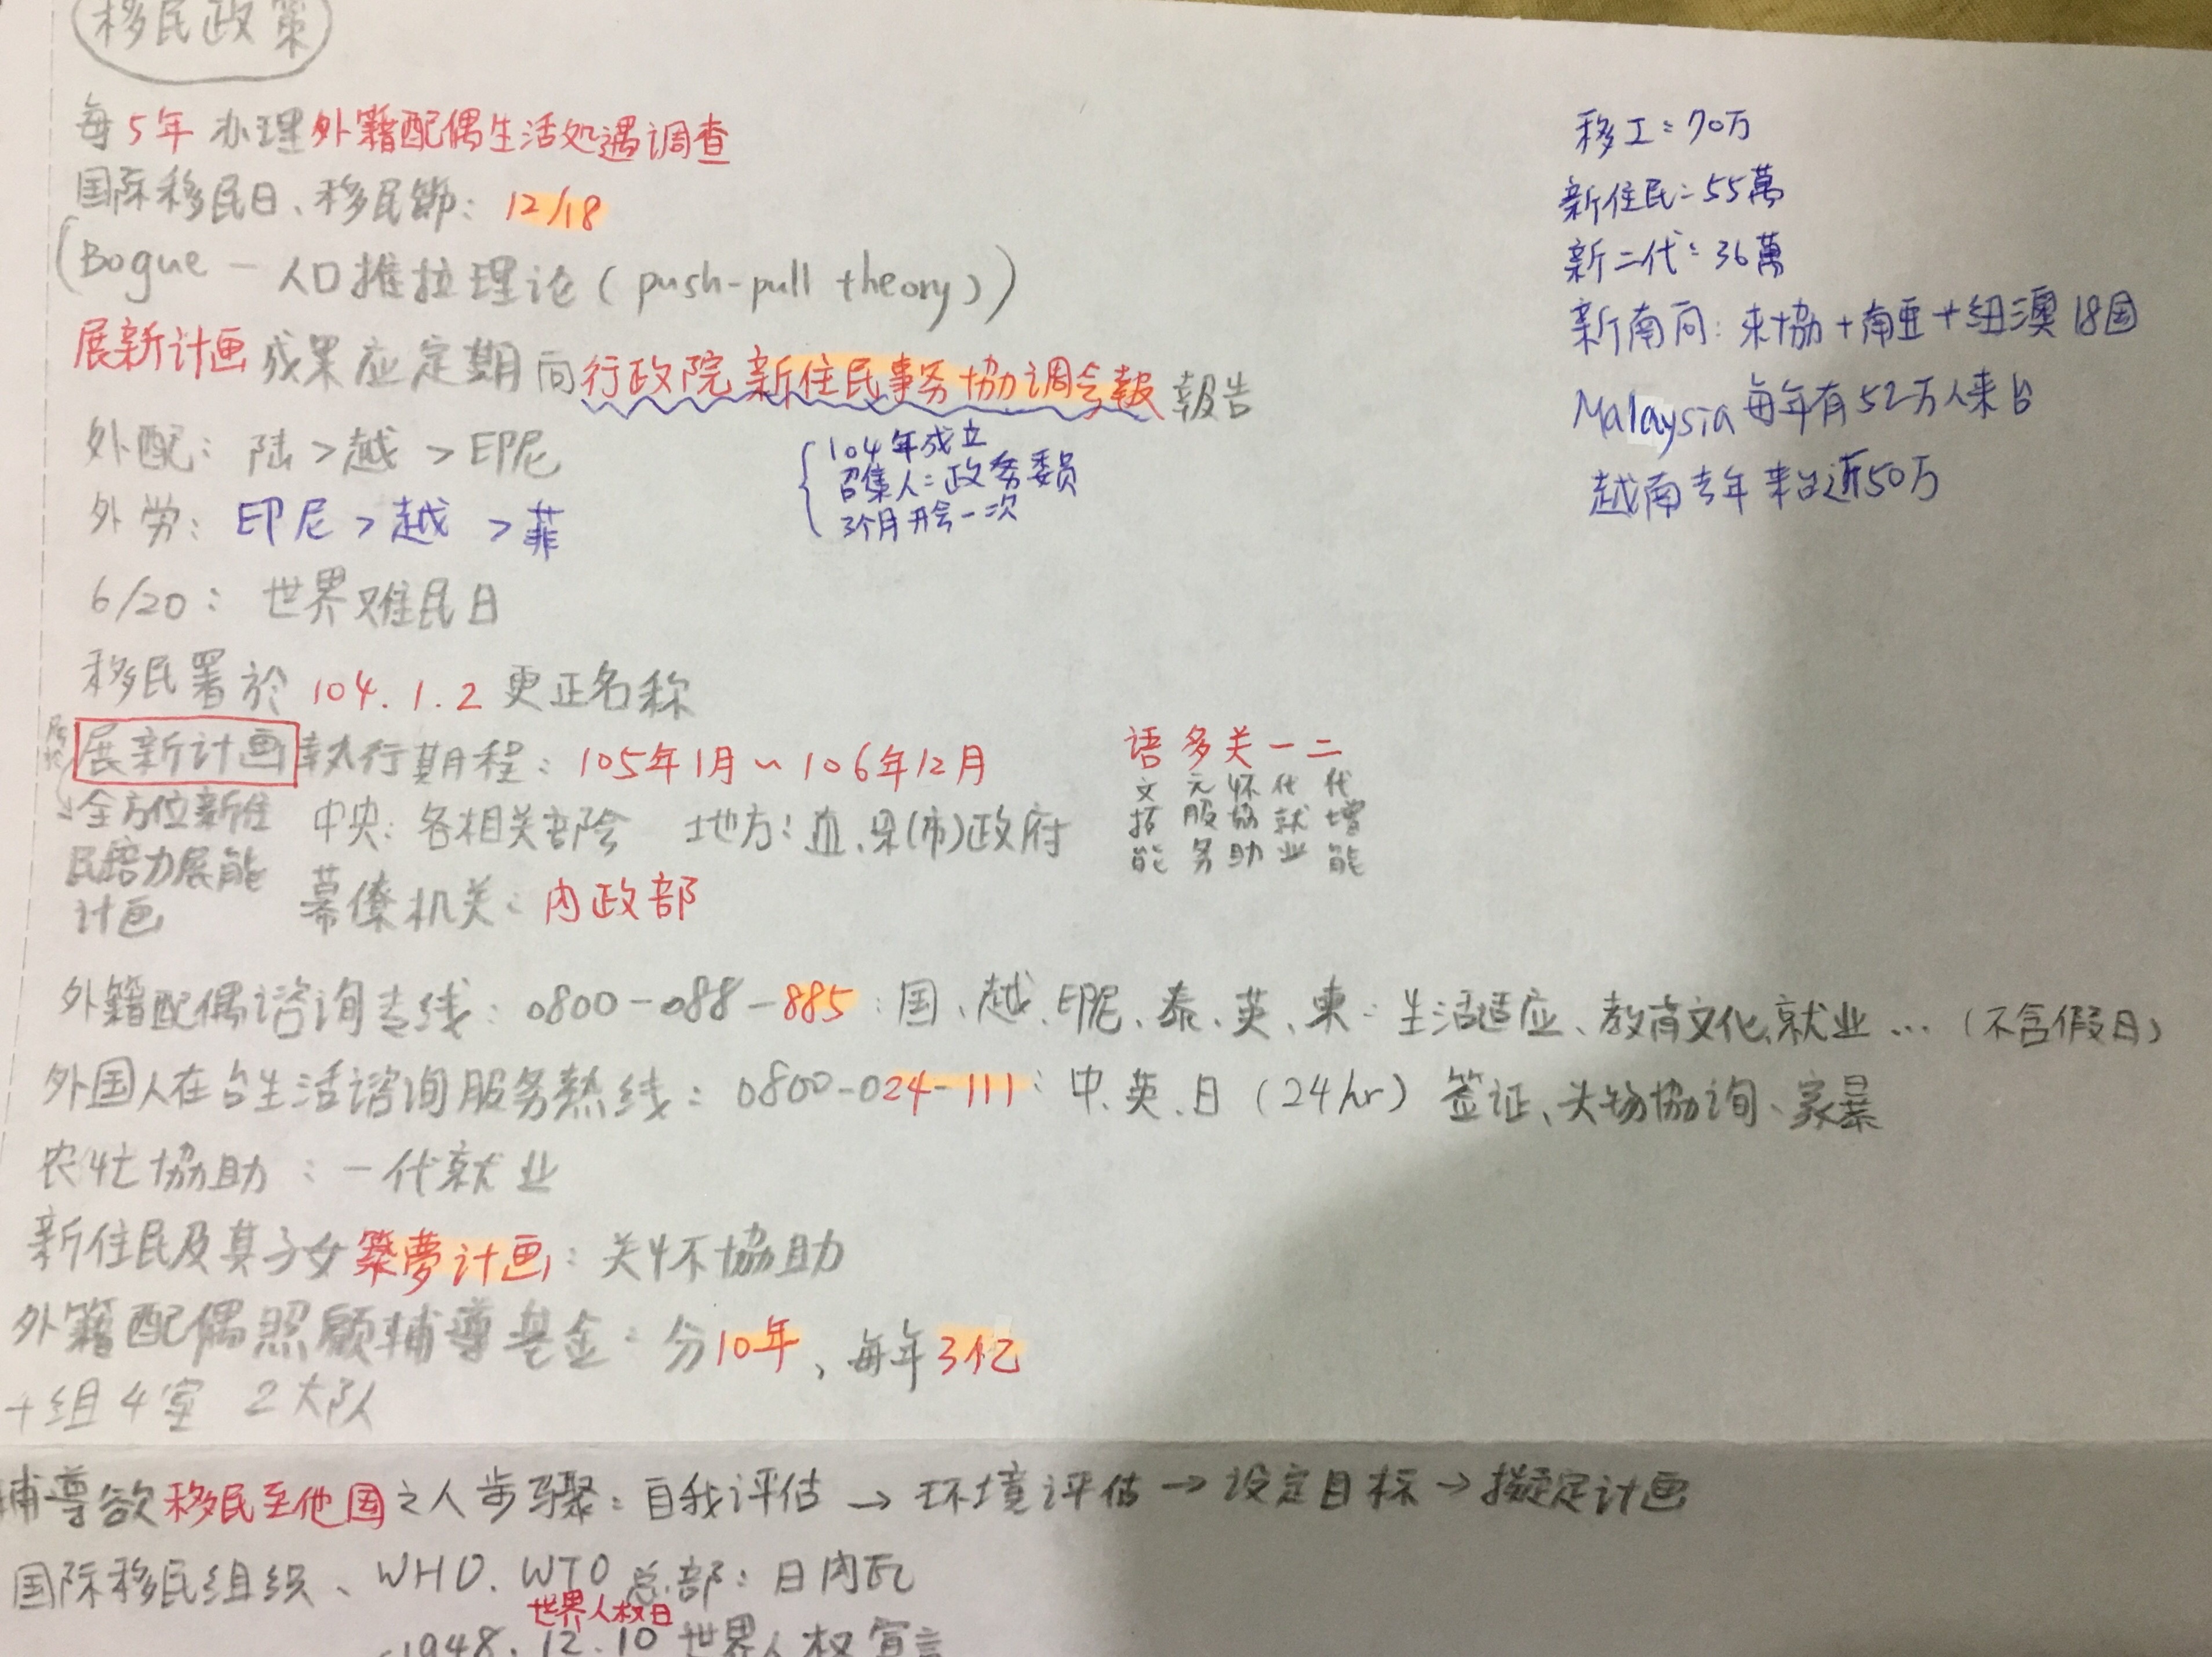 移民政策
每5年 办理外籍配偶生活处遇调查
国际移民日、移民節: 12/18
(Bogue - 人口推拉理论 (push-pull theory))
展新计画 成果应定期向行政院新住民事务協调会報 報告
104年成立
召集人: 政务委员
3个月开会一次
外配: 陆 > 越 > 印尼
外労: 印尼 > 越 > 菲
6/20: 世界难民日
移民署於 104.1.2 更正名称
展新计画 執行期程: 105年1月~106年12月
全方位新住
民培力展能
计画
中央: 各相关部会 地方: 直、县(市)政府
幕僚机关: 内政部
语 多 关 一 二
文 元 怀 代 代
拓 服 協 就 增
能 务 助 业 能
外籍配偶谘询专线: 0800-088-885: 国、越、印尼、泰、英、柬: 生活适应、教育文化、就业... (不含假日)
外国人在台生活谘询服务熱线: 0800-024-111: 中、英、日 (24hr) 签证、失物協询、家暴
农忙協助: 一代就业
新住民及其子女築夢计画: 关怀協助
外籍配偶照顾辅導基金: 分10年、每年3亿
4组4室 2大队
辅導欲移民至他国之人步骤: 自我评估 → 环境评估 → 设定目标 → 擬定计画
国际移民组织、WHO. WTO 总部: 日内瓦
世界人权日
1948.12.10 世界人权宣言
移工: 70万
新住民: 55萬
新二代: 36萬
新南向: 東協+南亚+纽澳 18国
Malaysia 每年有52万人来台
越南去年来台近50万